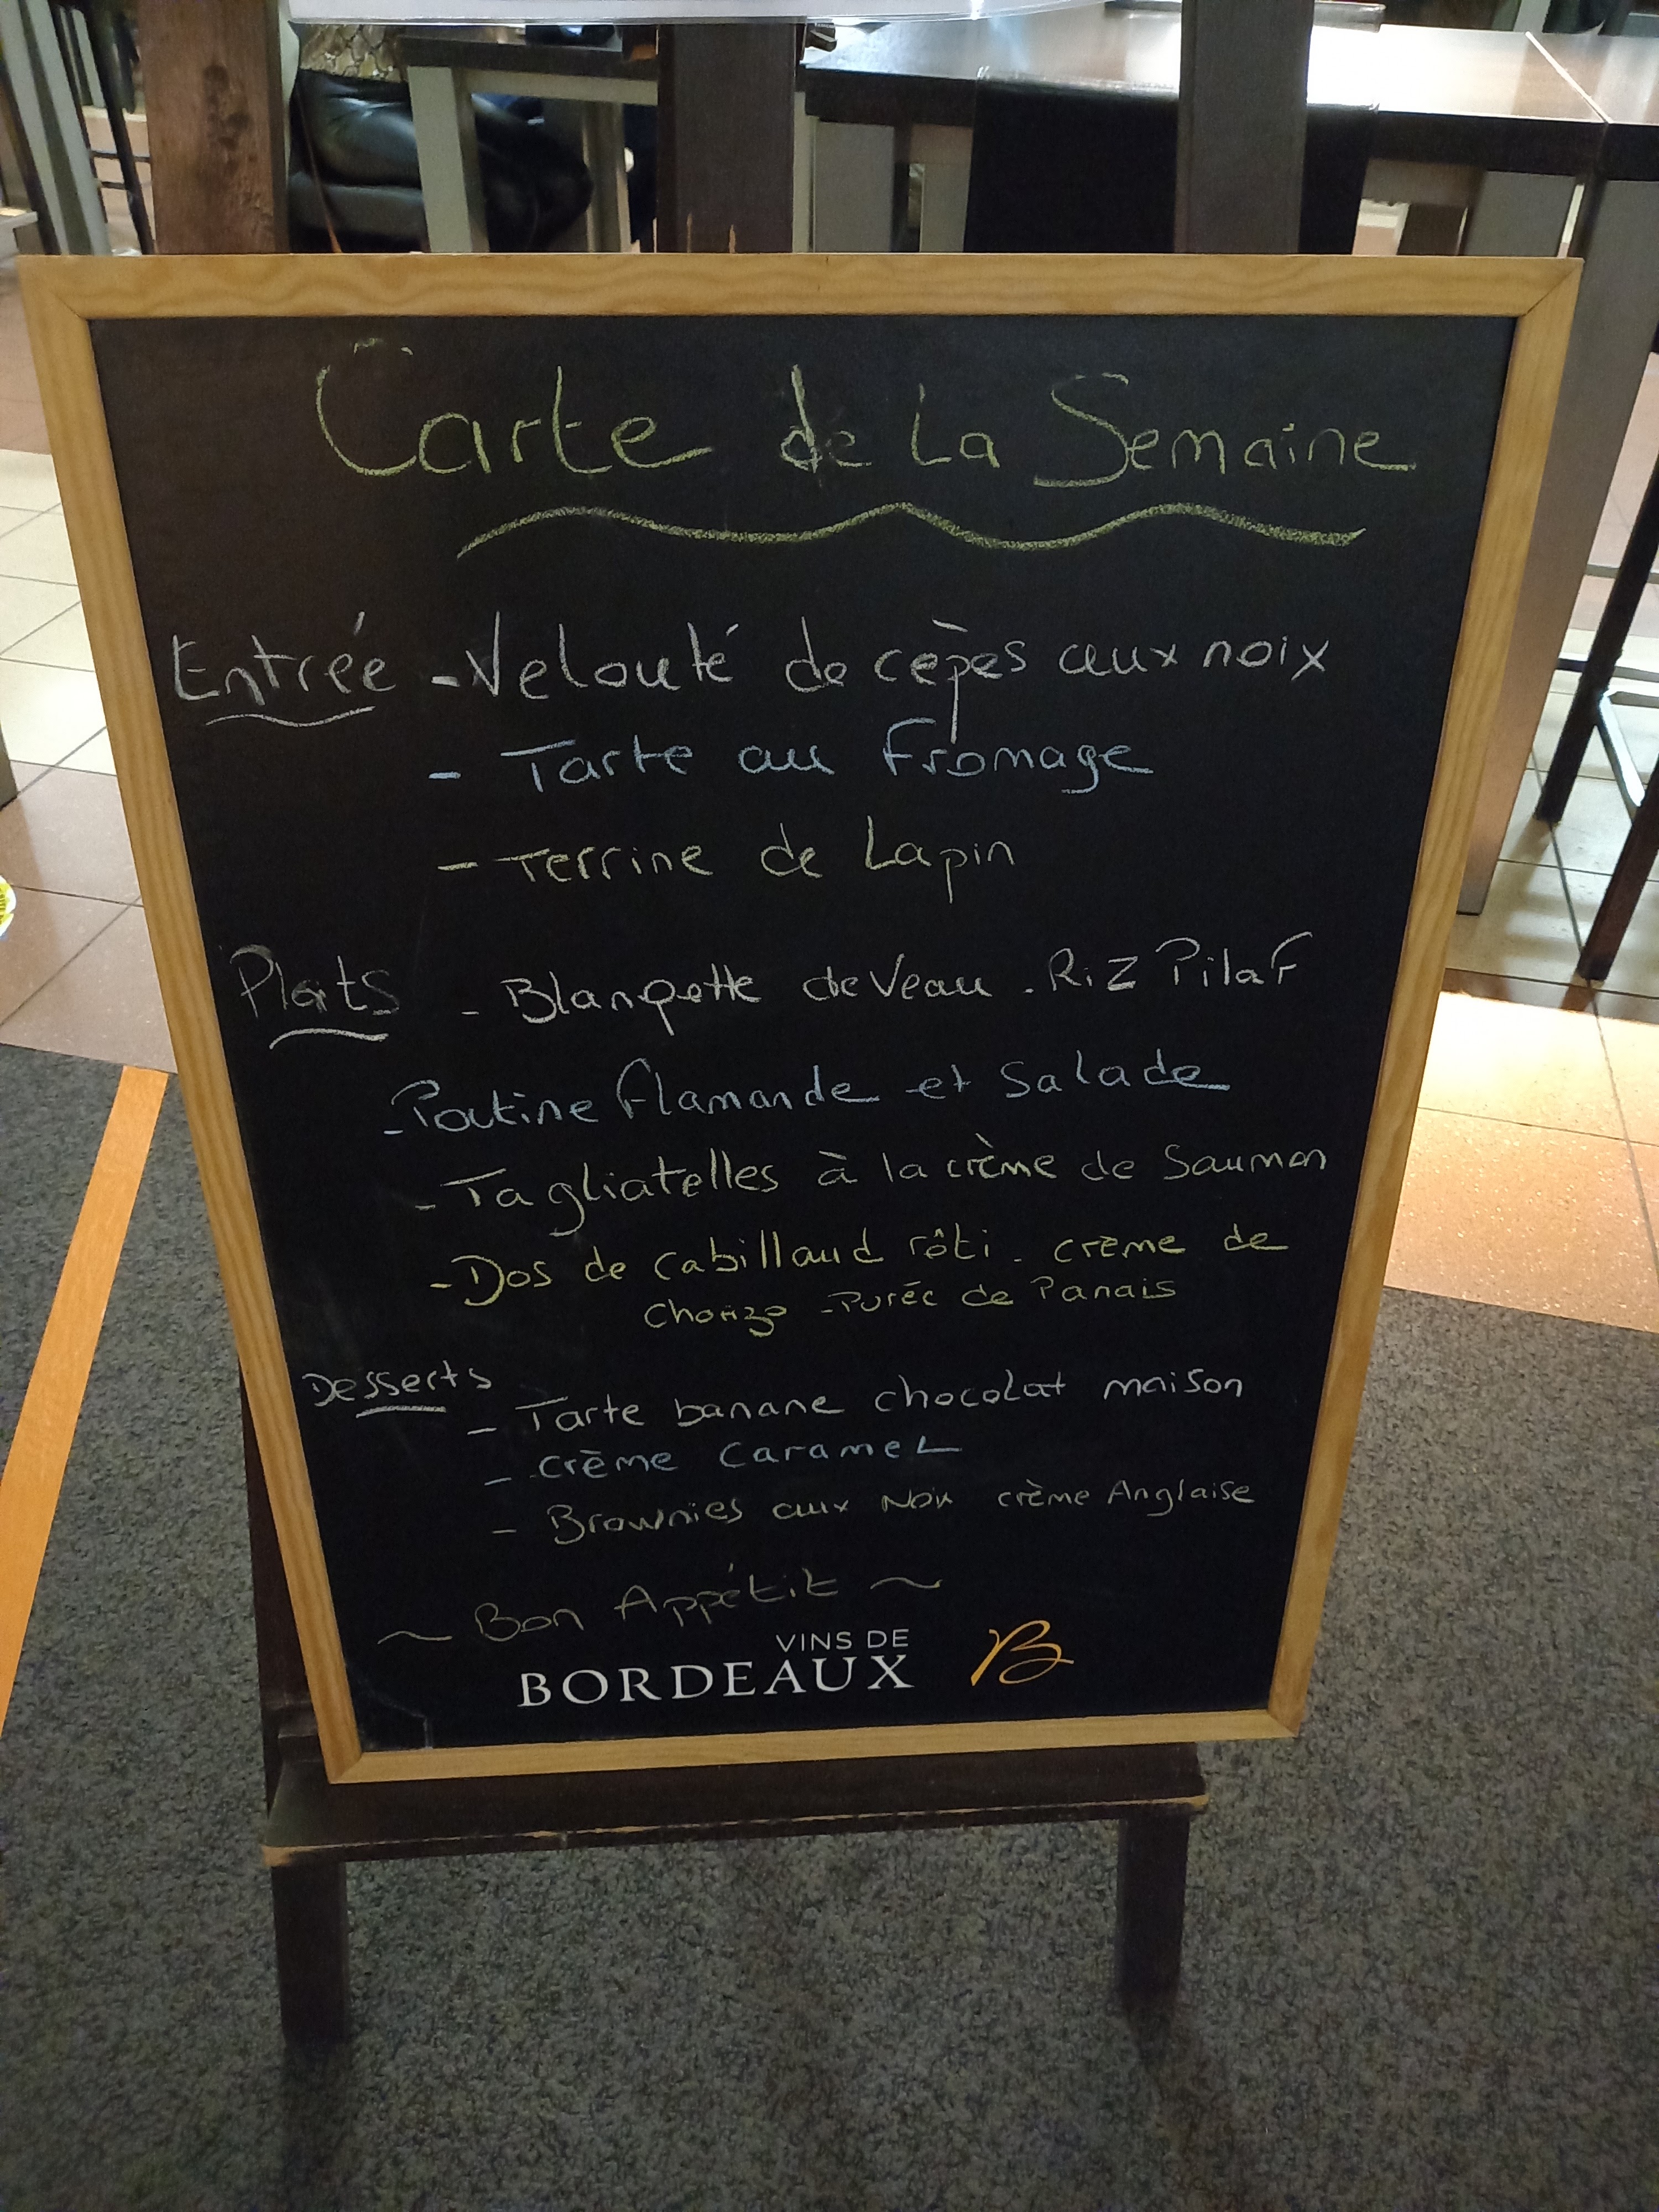 Carte de La Semaine
Entrée - Velouté de cèpes aux noix
- Tarte au fromage
- Terrine de Lapin
Plats - Blanquette de Veau . Riz Pilaf
- Poutine flamande et Salade
- Tagliatelles à la crème de Saumon
- Dos de cabillaud rôti - crème de
Chorizo - Purée de Panais
Desserts
- Tarte banane chocolat maison
- Crème CarameL
- Brownies aux Noix crème Anglaise
~ Bon Appétit ~
VINS DE
BORDEAUX B